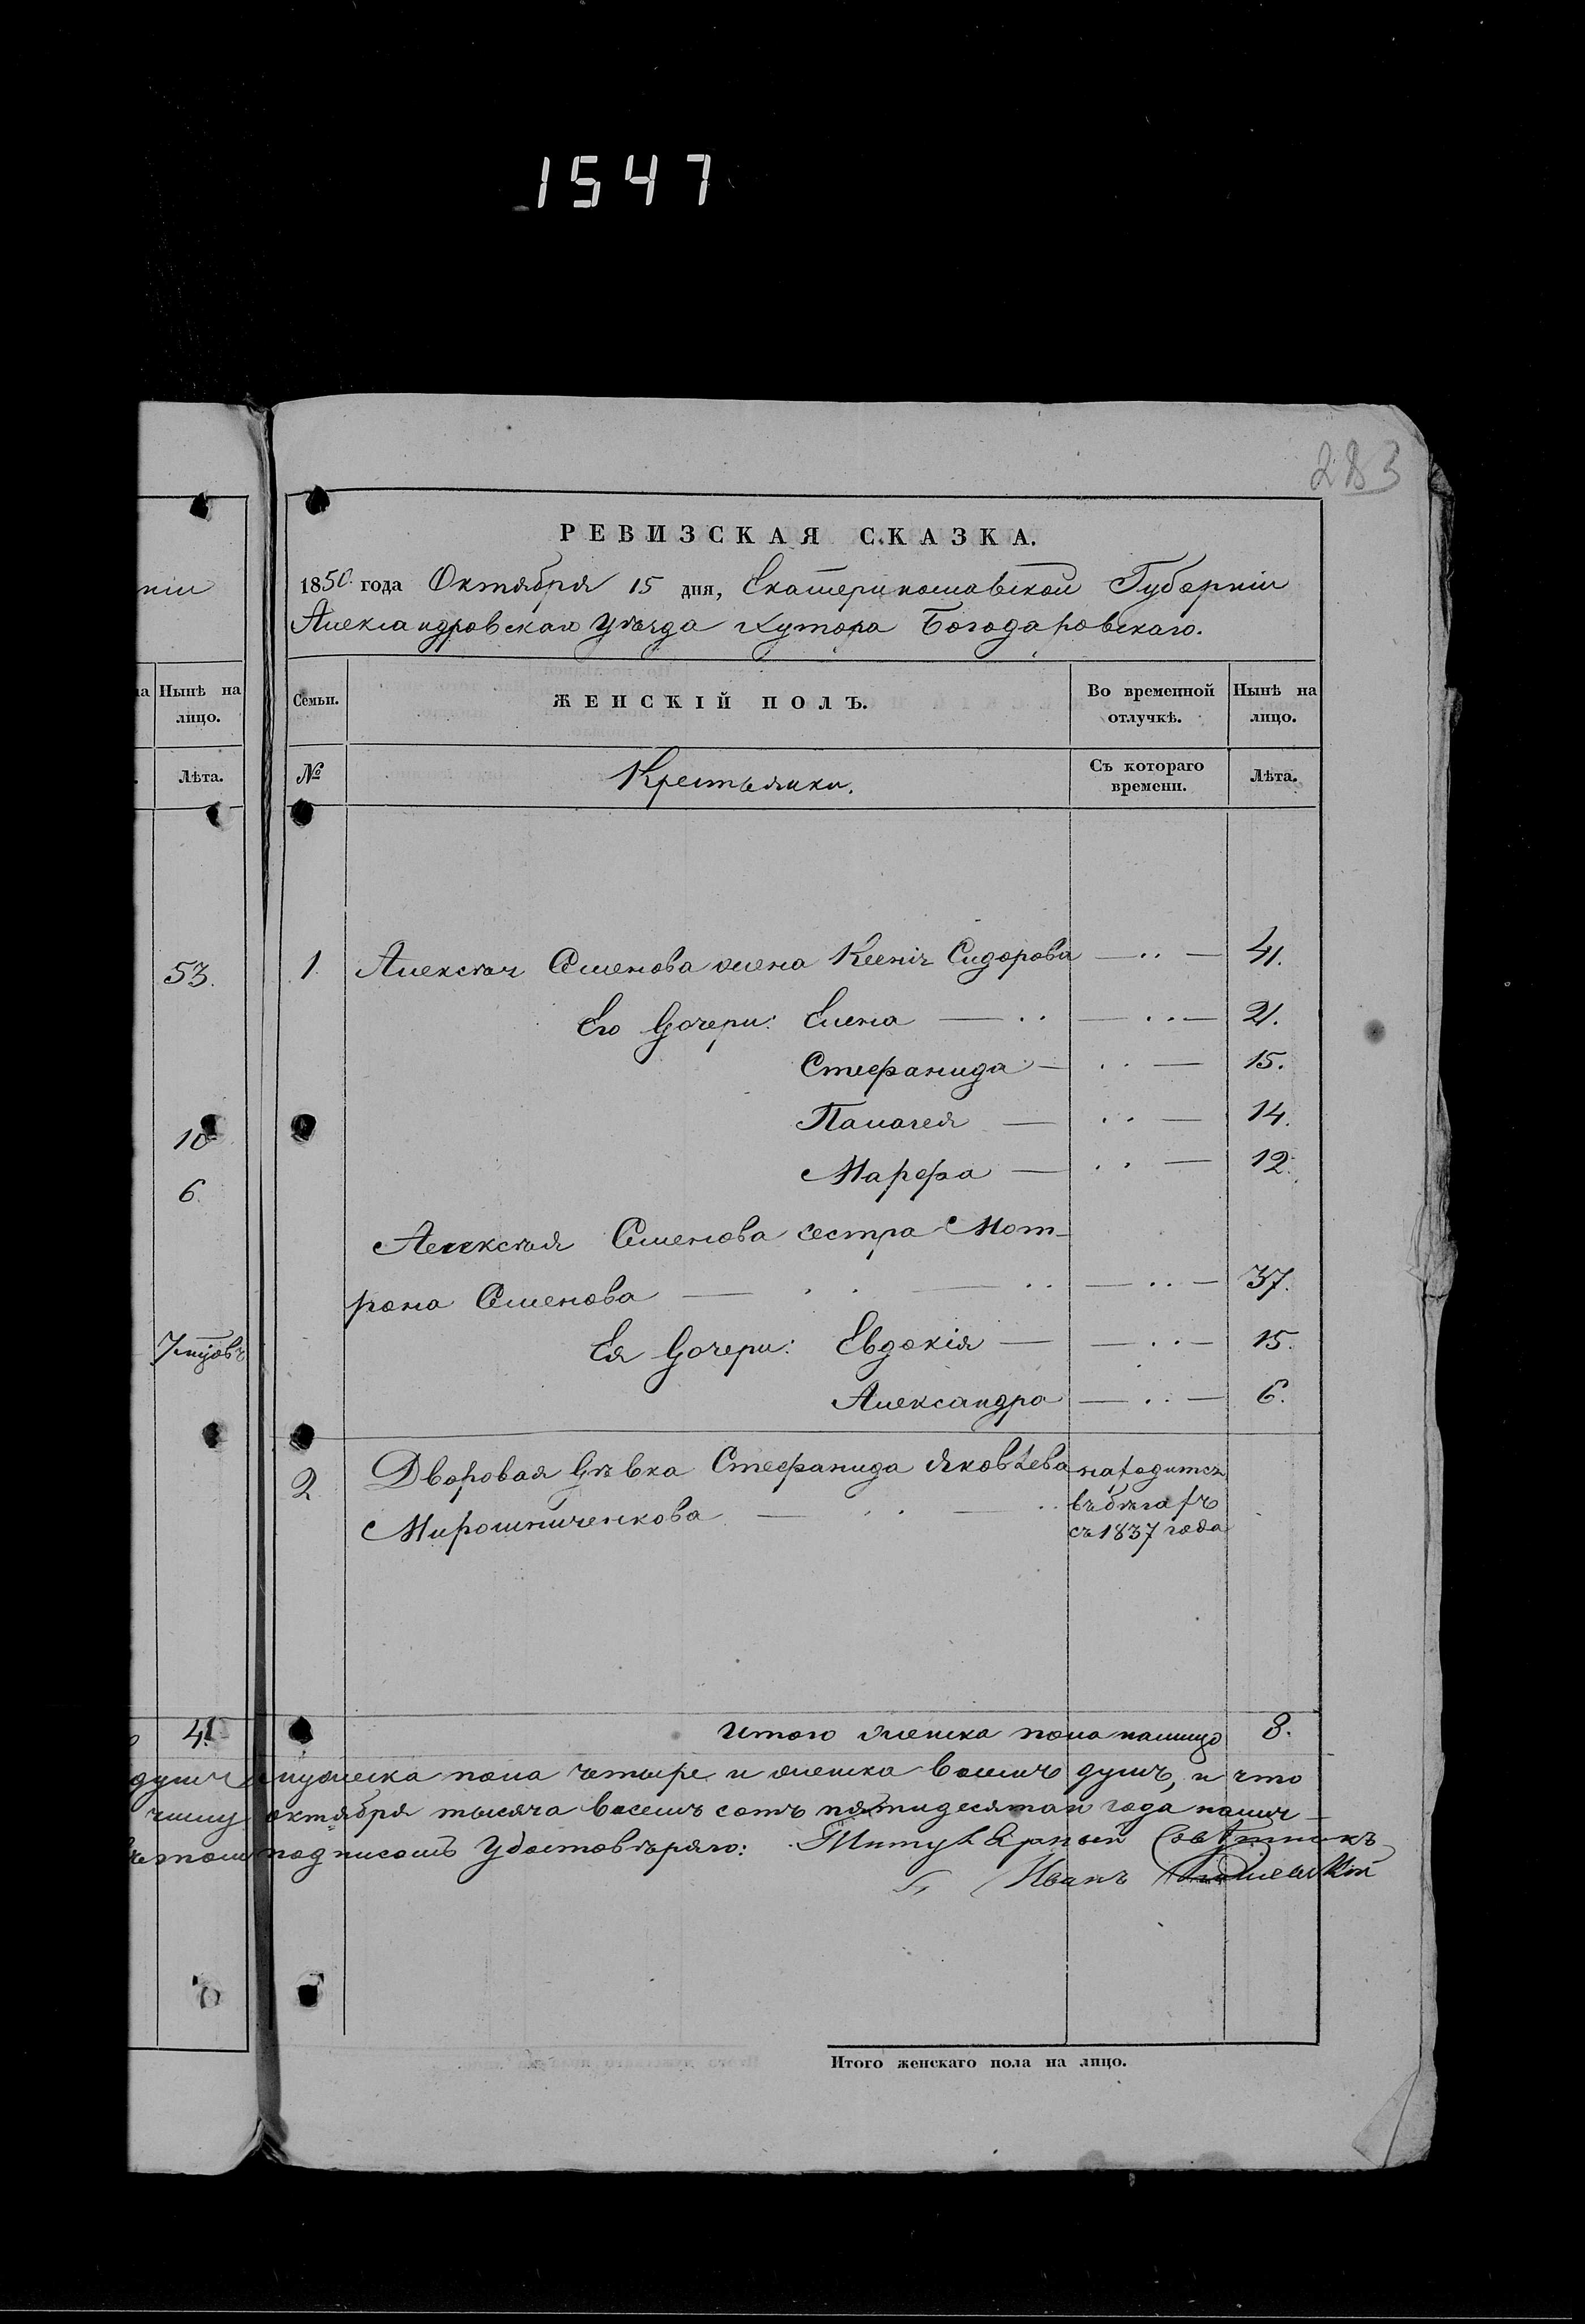 1547
283
РЕВИЗСКАЯ СКАЗКА.
1850 года Октября 15 дня, Екатеринославской Губерніи
Александровскаго уѣзда хутора Богодаровскаго.
ніи
на Нынѣ на лицо.
Лѣта.
Семьи.
ЖЕНСКІЙ ПОЛЪ.
Во временной отлучкѣ.
Нынѣ на лицо.
№
Крестьянки.
Съ котораго времени.
Лѣта.
53.
1. Алексѣя Семенова жена Ксенія Сидорова — .. — 41.
Его дочери: Елена — .. — .. — 21.
Стефанида — .. — 15.
10
Палагея — .. — 14.
6.
Марфа — .. — 12.
Алексѣя Семенова сестра Мот-
рона Семенова — .. — .. — .. — 37.
Ея дочери: Евдокія — — .. — 15.
Александра — .. — 6.
2 Дворовая дѣвка Стефанида Яковлева находится
Мирошниченкова — .. — .. въ бѣгахъ
съ 1837 года
4.
Итого женска пола налицо 8.
душъ мужеска пола четыре и женска восемь душъ, и что
октября тысяча восемь сотъ пятидесятаго года
подписомъ удостовѣряю: Титулярный Совѣтникъ
Иванъ
Итого женскаго пола на лицо.